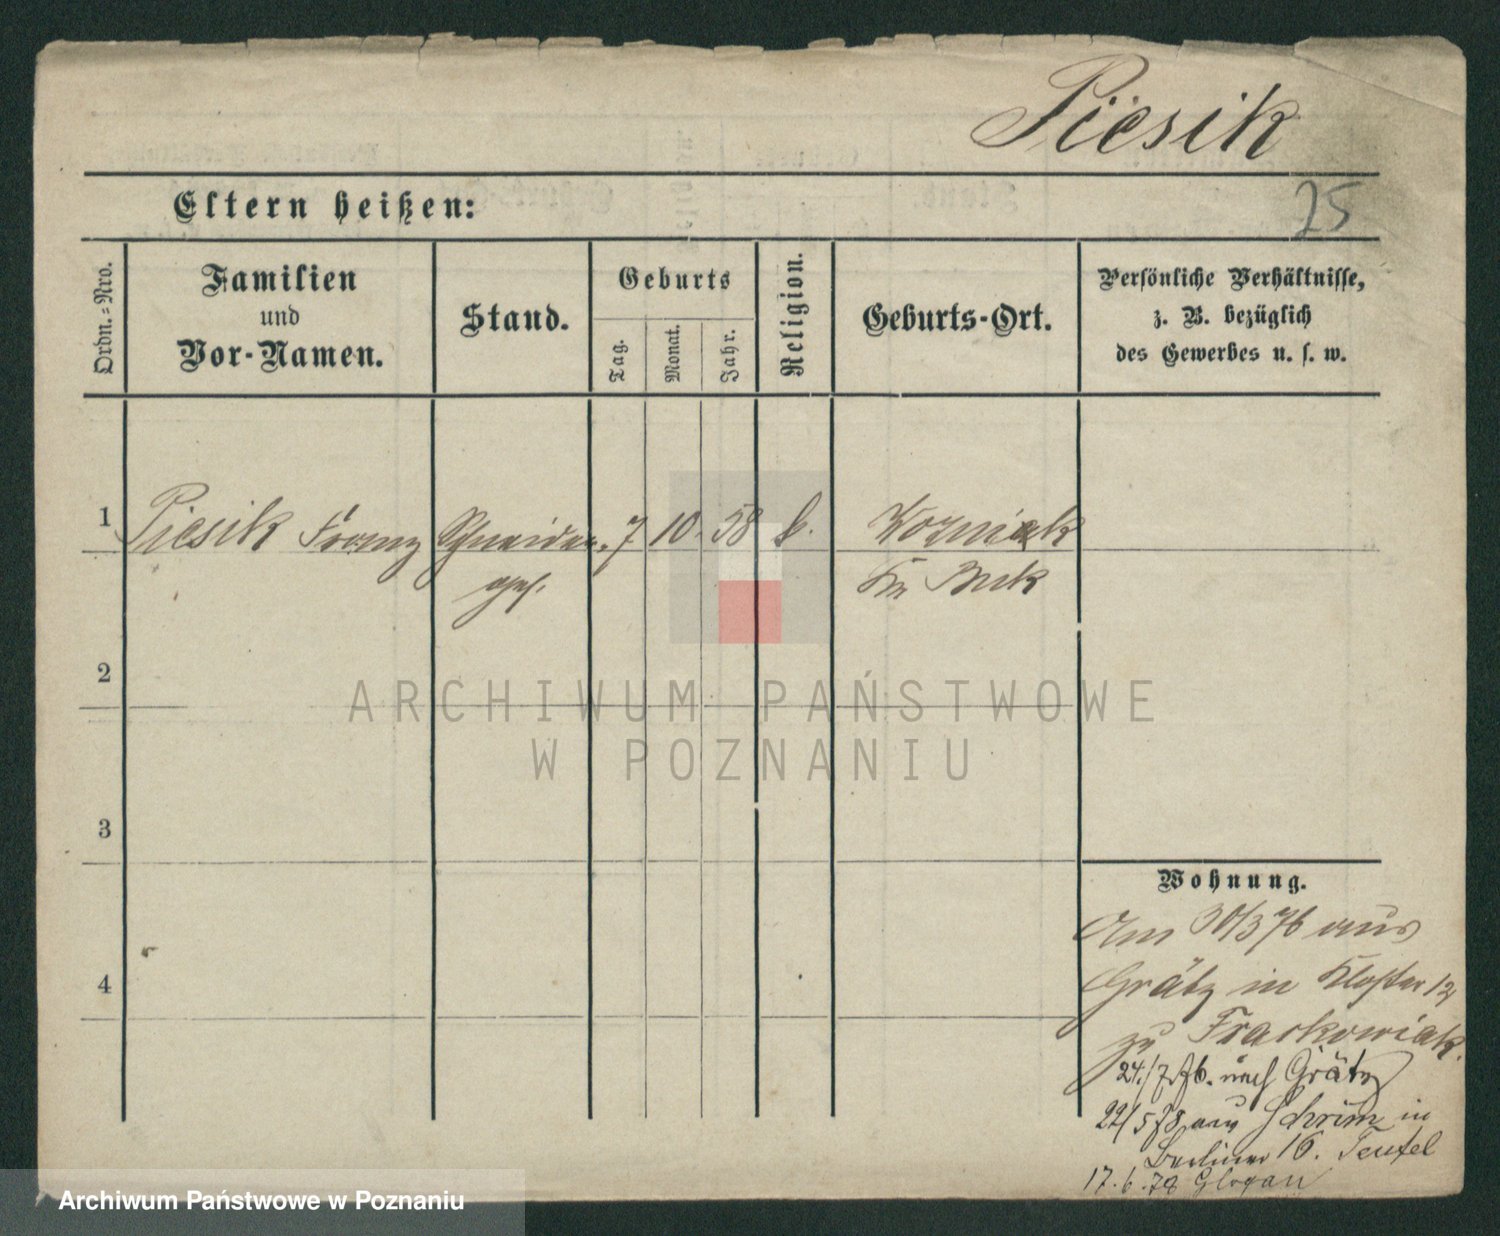 Piesik
25
Eltern heißen:
Ordn.-Nro.
Familien
und
Vor-Namen.
Stand.
Geburts
Tag.
Monat.
Jahr.
Religion.
Geburts-Ort.
Persönliche Verhältnisse,
z. B. bezüglich
des Gewerbes u. s. w.
1 Piesik Franz Schneider 7 10. 58 k. Wozniak
ges. Kr Buk
2
ARCHIWUM PAŃSTWOWE
W POZNANIU
3
Wohnung.
Am 30/3 76 aus
4
Grätz in Kloster 12
zu Fraskowiak.
24./7.76. nach Grätz
22/5 78 aus Schrim in
Berliner 16. Teufel
17.6.78 Glogau
Archiwum Państwowe w Poznaniu